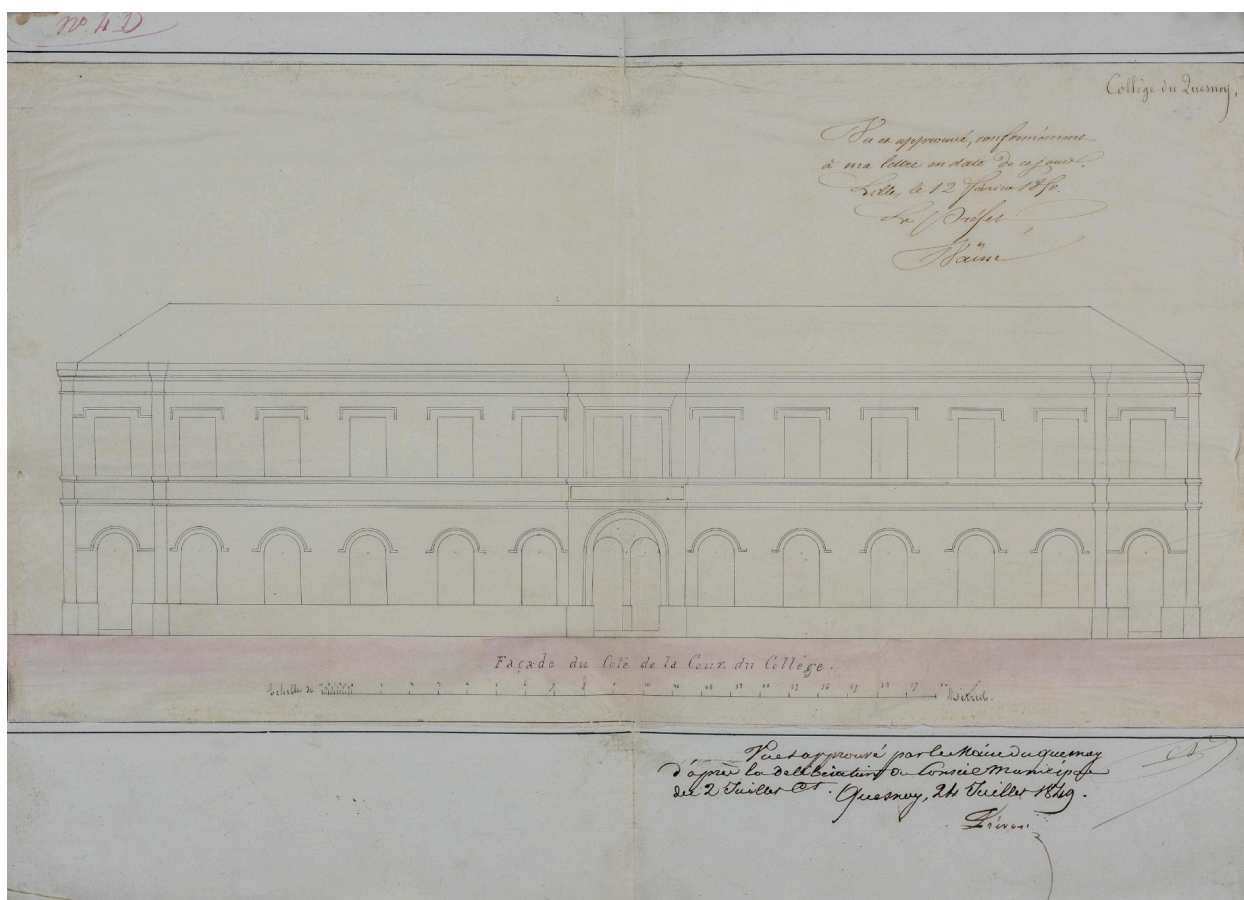 n° 4 D
Collège du Quesnoy,
Vu et approuvé, conformément
à ma lettre en date de ce jour.
Lille, le 12 février 1850.
Le Préfet
Façade du Coté de la Cour du Collège.
Echelle de Mètres.
Vu et approuvé par le Maire du Quesnoy
d'après la délibération du Conseil Municipal
du 2 Juillet Ct. Quesnoy, 24 Juillet 1849.